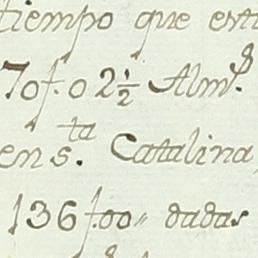 tiempo que
70f.02½ Alm.s
en S.ta Catalina
136f.00 dadas